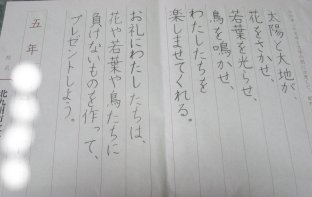 太陽と大地が、
花をさかせ、
若葉を光らせ、
鳥を鳴かせ、
わたしたちを
楽しませてくれる。
お礼にわたしたちは、
花や若葉や鳥たちに
負けないものを作って、
プレゼントしよう。
五年